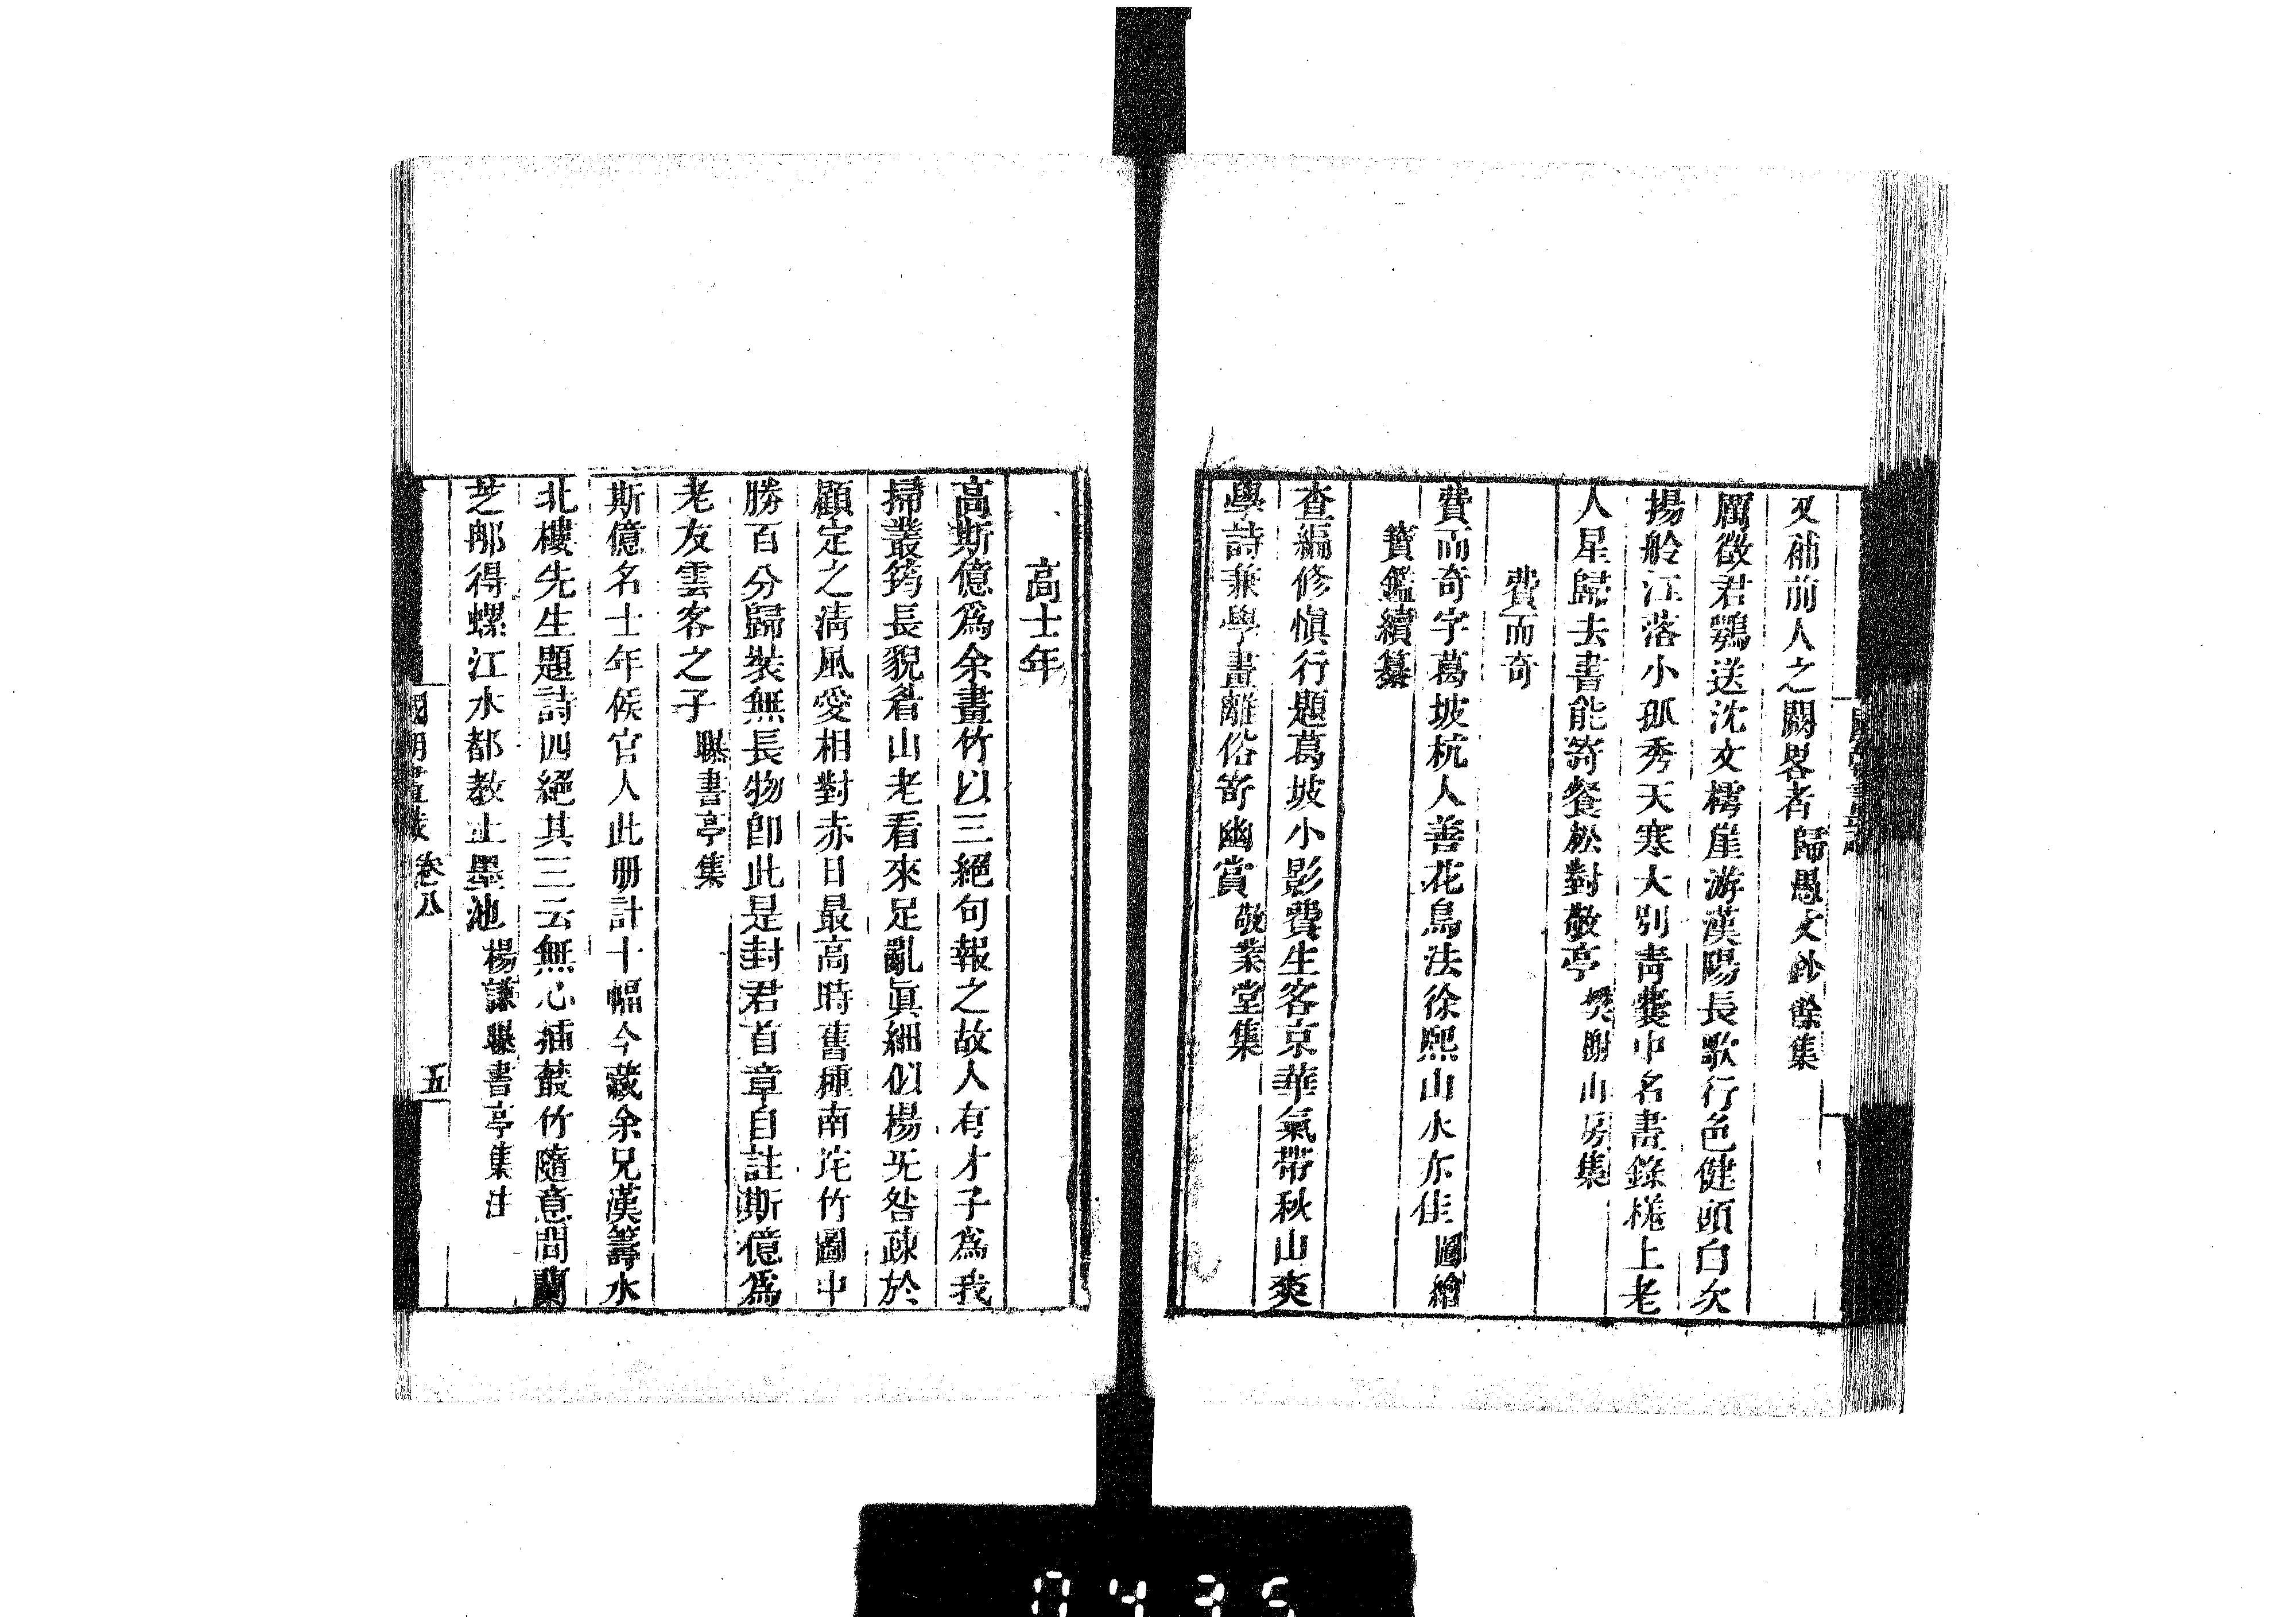 又補前人之闕畧者歸愚文鈔餘集
厲徵君鶚送沈文樗崖游漢陽長歌行色健頭白欠
揚舲江落小孤秀天寒大別青囊中名畫錄槎上老
人星歸去書能寄餐松對敬亭樊榭山房集
費而奇
費而奇字葛坡杭人善花鳥法徐熙山水亦佳圖繪
寶鑑續纂
查編修慎行題葛坡小影費生客京華氣帶秋山爽
學詩兼學畫離俗寄幽賞敬業堂集
高士年
高斯億爲余畫竹以三絕句報之故人有才子爲我
掃叢筠長貌着山老看來足亂眞細似楊无咎疎於
顧定之淸風愛相對赤日最高時舊種南垞竹圖中
勝百分歸裝無長物卽此是封君首章自註斯億爲
老友雲客之子曝書亭集
斯億名士年候官人此册計十幅今藏余兄漢籌水
北樓先生題詩四絕其三云無心插叢竹隨意間蘭
芝那得螺江水都教止墨池楊謙曝書亭集注
國朝畫 卷八 五
0435